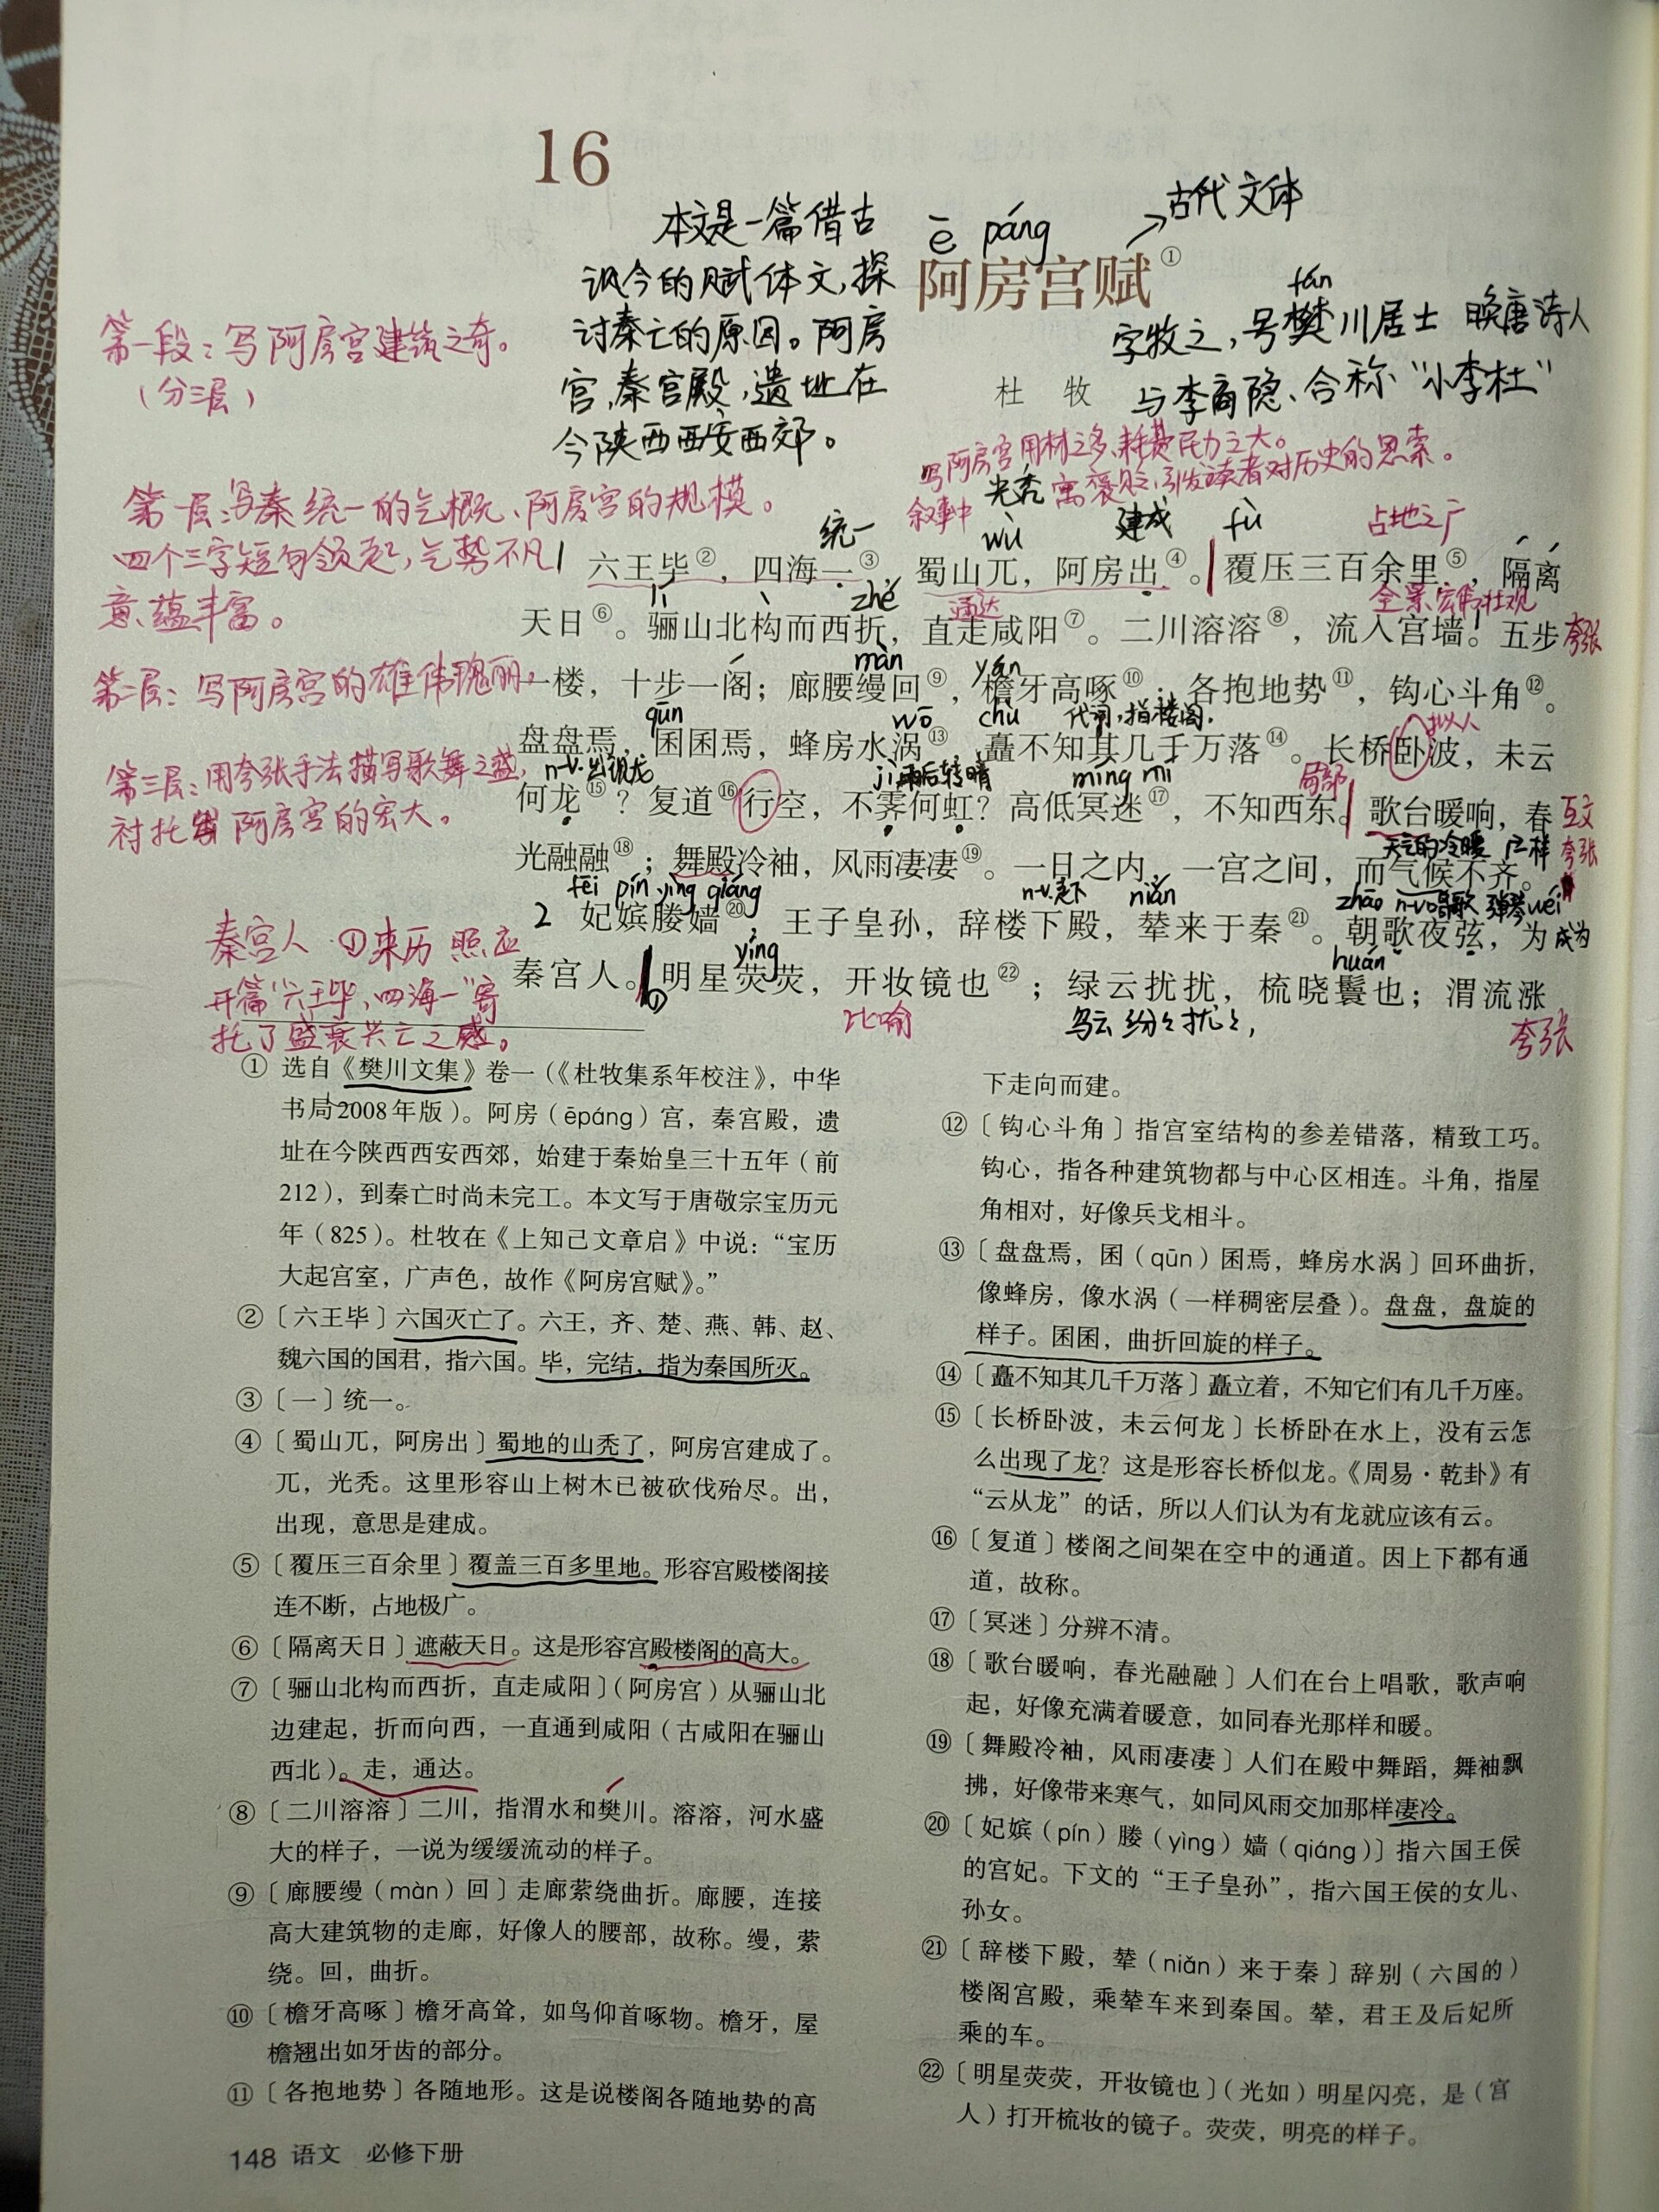 16
古代文体
本文是一篇借古
讽今的赋体文,探
讨秦亡的原因。阿房
宫,秦宫殿,遗址在
今陕西西安西郊。
ē páng
阿房宫赋①
fán
字牧之,号樊川居士 晚唐诗人
杜 牧
与李商隐、合称“小李杜”
第一段:写阿房宫建筑之奇。
(分三层)
写阿房宫用材之多、耗费民力之大。
叙事中 寓褒贬,引发读者对历史的思索。
第一层:写秦统一的气概、阿房宫的规模。
四个三字短句领起,气势不凡
意蕴丰富。
第二层:写阿房宫的雄伟瑰丽。
第三层:用夸张手法描写歌舞之盛,
衬托出阿房宫的宏大。
秦宫人 ①来历 照应
开篇“六王毕,四海一”寄
托了盛衰兴亡之感。
统一 光秃 wù 建成 fù 占地之广
1 六王毕②,四海一③,蜀山兀,阿房出④。覆压三百余里⑤,隔离
lí zhé 通达 全景 宏伟壮观
天日⑥。骊山北构而西折,直走咸阳⑦。二川溶溶⑧,流入宫墙。五步 夸张
màn yán
一楼,十步一阁;廊腰缦回⑨,檐牙高啄⑩;各抱地势⑪,钩心斗角⑫。
qūn wō chù 代词,指楼阁. 拟人
盘盘焉,囷囷焉,蜂房水涡⑬,矗不知其几千万落⑭。长桥卧波,未云
n-v.出现龙 jì 雨后转晴 míng mí 局部
何龙⑮?复道⑯行空,不霁何虹?高低冥迷⑰,不知西东。歌台暖响,春 互文
天气的冷暖 夸张
光融融⑱;舞殿冷袖,风雨凄凄⑲。一日之内,一宫之间,而气候不齐。
fēi pín yìng qiáng n-v.走下 niǎn zhāo n-v唱歌 弹琴 wéi
2 妃嫔媵嫱⑳,王子皇孙,辞楼下殿,辇来于秦㉑。朝歌夜弦,为 成为
yíng huán
秦宫人。明星荧荧,开妆镜也㉒;绿云扰扰,梳晓鬟也;渭流涨
比喻 乌云纷纷扰扰, 夸张
① 选自《樊川文集》卷一(《杜牧集系年校注》,中华
书局2008年版)。阿房(ēpáng)宫,秦宫殿,遗
址在今陕西西安西郊,始建于秦始皇三十五年(前
212),到秦亡时尚未完工。本文写于唐敬宗宝历元
年(825)。杜牧在《上知己文章启》中说:“宝历
大起宫室,广声色,故作《阿房宫赋》。”
② 〔六王毕〕六国灭亡了。六王,齐、楚、燕、韩、赵、
魏六国的国君,指六国。毕,完结,指为秦国所灭。
③ 〔一〕统一。
④ 〔蜀山兀,阿房出〕蜀地的山秃了,阿房宫建成了。
兀,光秃。这里形容山上树木已被砍伐殆尽。出,
出现,意思是建成。
⑤ 〔覆压三百余里〕覆盖三百多里地。形容宫殿楼阁接
连不断,占地极广。
⑥ 〔隔离天日〕遮蔽天日。这是形容宫殿楼阁的高大。
⑦ 〔骊山北构而西折,直走咸阳〕(阿房宫)从骊山北
边建起,折而向西,一直通到咸阳(古咸阳在骊山
西北)。走,通达。
⑧ 〔二川溶溶〕二川,指渭水和樊川。溶溶,河水盛
大的样子,一说为缓缓流动的样子。
⑨ 〔廊腰缦(màn)回〕走廊萦绕曲折。廊腰,连接
高大建筑物的走廊,好像人的腰部,故称。缦,萦
绕。回,曲折。
⑩ 〔檐牙高啄〕檐牙高耸,如鸟仰首啄物。檐牙,屋
檐翘出如牙齿的部分。
⑪ 〔各抱地势〕各随地形。这是说楼阁各随地势的高
下走向而建。
⑫ 〔钩心斗角〕指宫室结构的参差错落,精致工巧。
钩心,指各种建筑物都与中心区相连。斗角,指屋
角相对,好像兵戈相斗。
⑬ 〔盘盘焉,囷(qūn)囷焉,蜂房水涡〕回环曲折,
像蜂房,像水涡(一样稠密层叠)。盘盘,盘旋的
样子。囷囷,曲折回旋的样子。
⑭ 〔矗不知其几千万落〕矗立着,不知它们有几千万座。
⑮ 〔长桥卧波,未云何龙〕长桥卧在水上,没有云怎
么出现了龙?这是形容长桥似龙。《周易·乾卦》有
“云从龙”的话,所以人们认为有龙就应该有云。
⑯ 〔复道〕楼阁之间架在空中的通道。因上下都有通
道,故称。
⑰ 〔冥迷〕分辨不清。
⑱ 〔歌台暖响,春光融融〕人们在台上唱歌,歌声响
起,好像充满着暖意,如同春光那样和暖。
⑲ 〔舞殿冷袖,风雨凄凄〕人们在殿中舞蹈,舞袖飘
拂,好像带来寒气,如同风雨交加那样凄冷。
⑳ 〔妃嫔(pín)媵(yìng)嫱(qiáng)〕指六国王侯
的宫妃。下文的“王子皇孙”,指六国王侯的女儿、
孙女。
㉑ 〔辞楼下殿,辇(niǎn)来于秦〕辞别(六国的)
楼阁宫殿,乘辇车来到秦国。辇,君王及后妃所
乘的车。
㉒ 〔明星荧荧,开妆镜也〕(光如)明星闪亮,是(宫
人)打开梳妆的镜子。荧荧,明亮的样子。
148 语文 必修下册